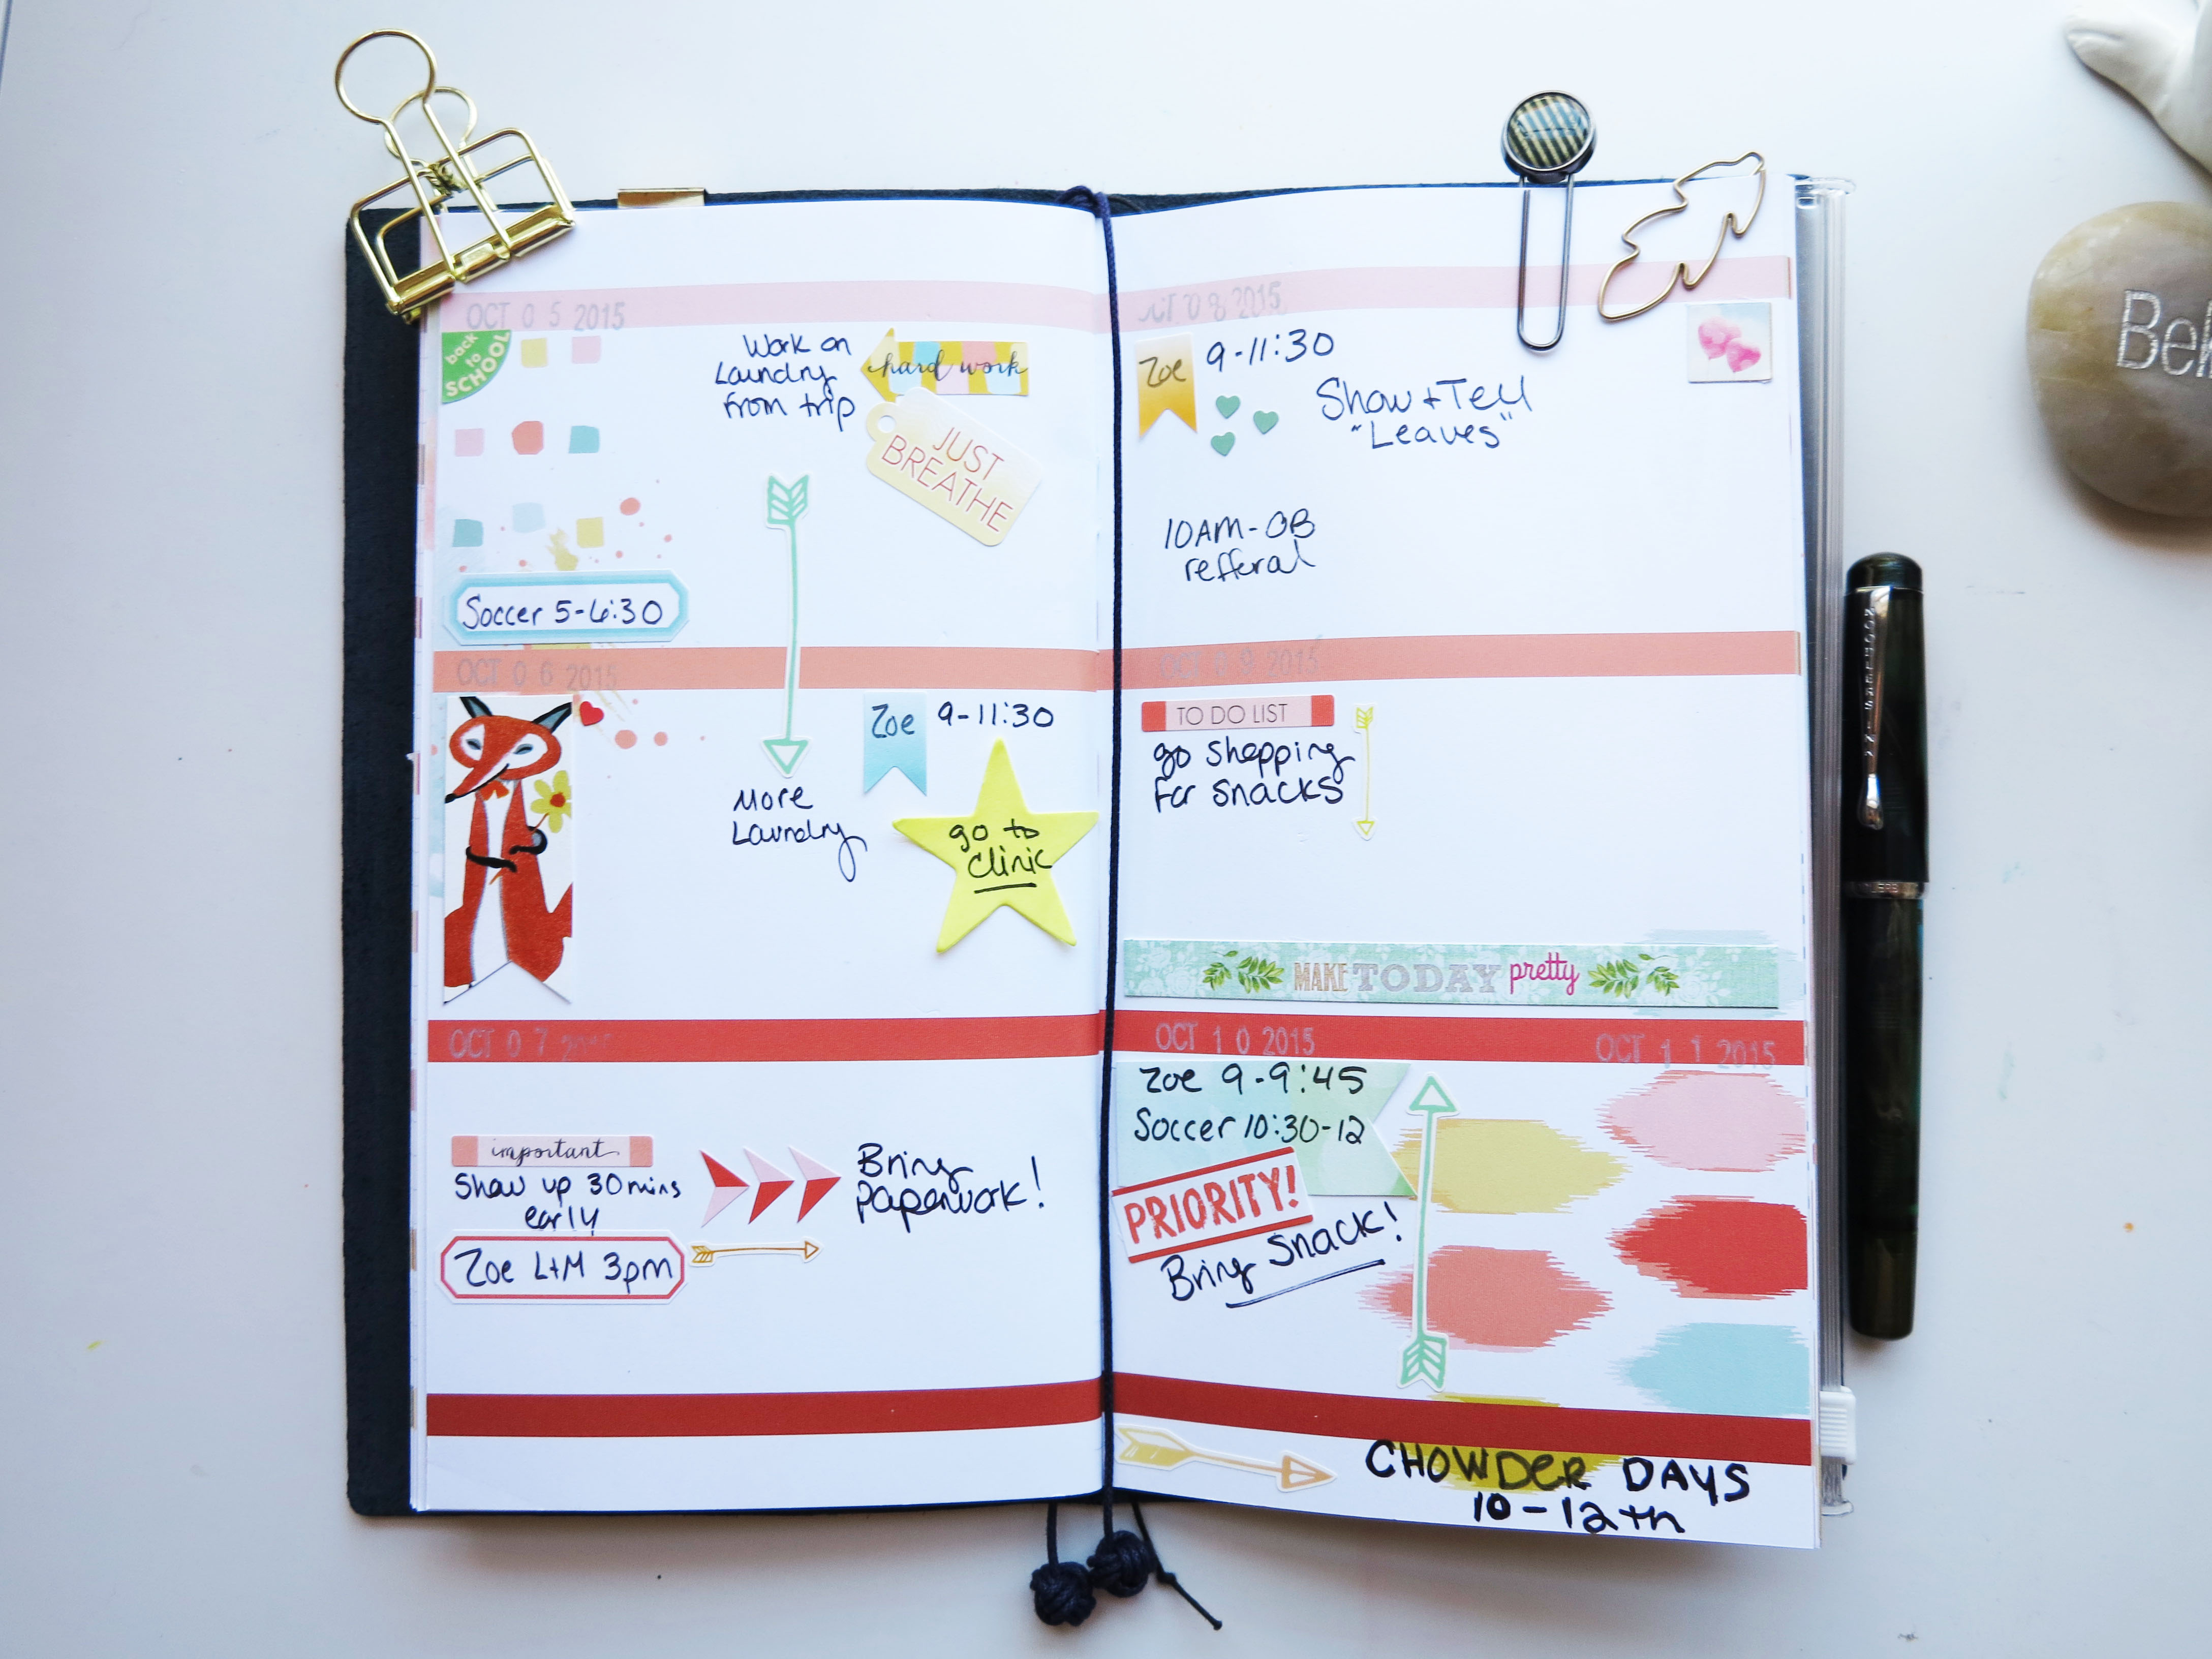 OCT 0 5 2015
back
to
SCHOOL
Work on
Laundry
from trip
hard work
JUST
BREATHE
Soccer 5-6:30
OCT 0 6 2015
Zoe 9-11:30
More
Laundry
go to
clinic
OCT 0 7
important
Show up 30mins
early
Zoe L+M 3pm
Bring
paperwork!
0 8 2015
Zoe 9-11:30
Show + Tell
"Leaves"
10AM-OB
refferal
OCT 0 9 2015
TO DO LIST
go shopping
for snacks
MAKE TODAY pretty
OCT 1 0 2015
OCT 1 1 2015
Zoe 9-9:45
Soccer 10:30-12
PRIORITY!
Bring snack!
CHOWDER DAYS
10-12th